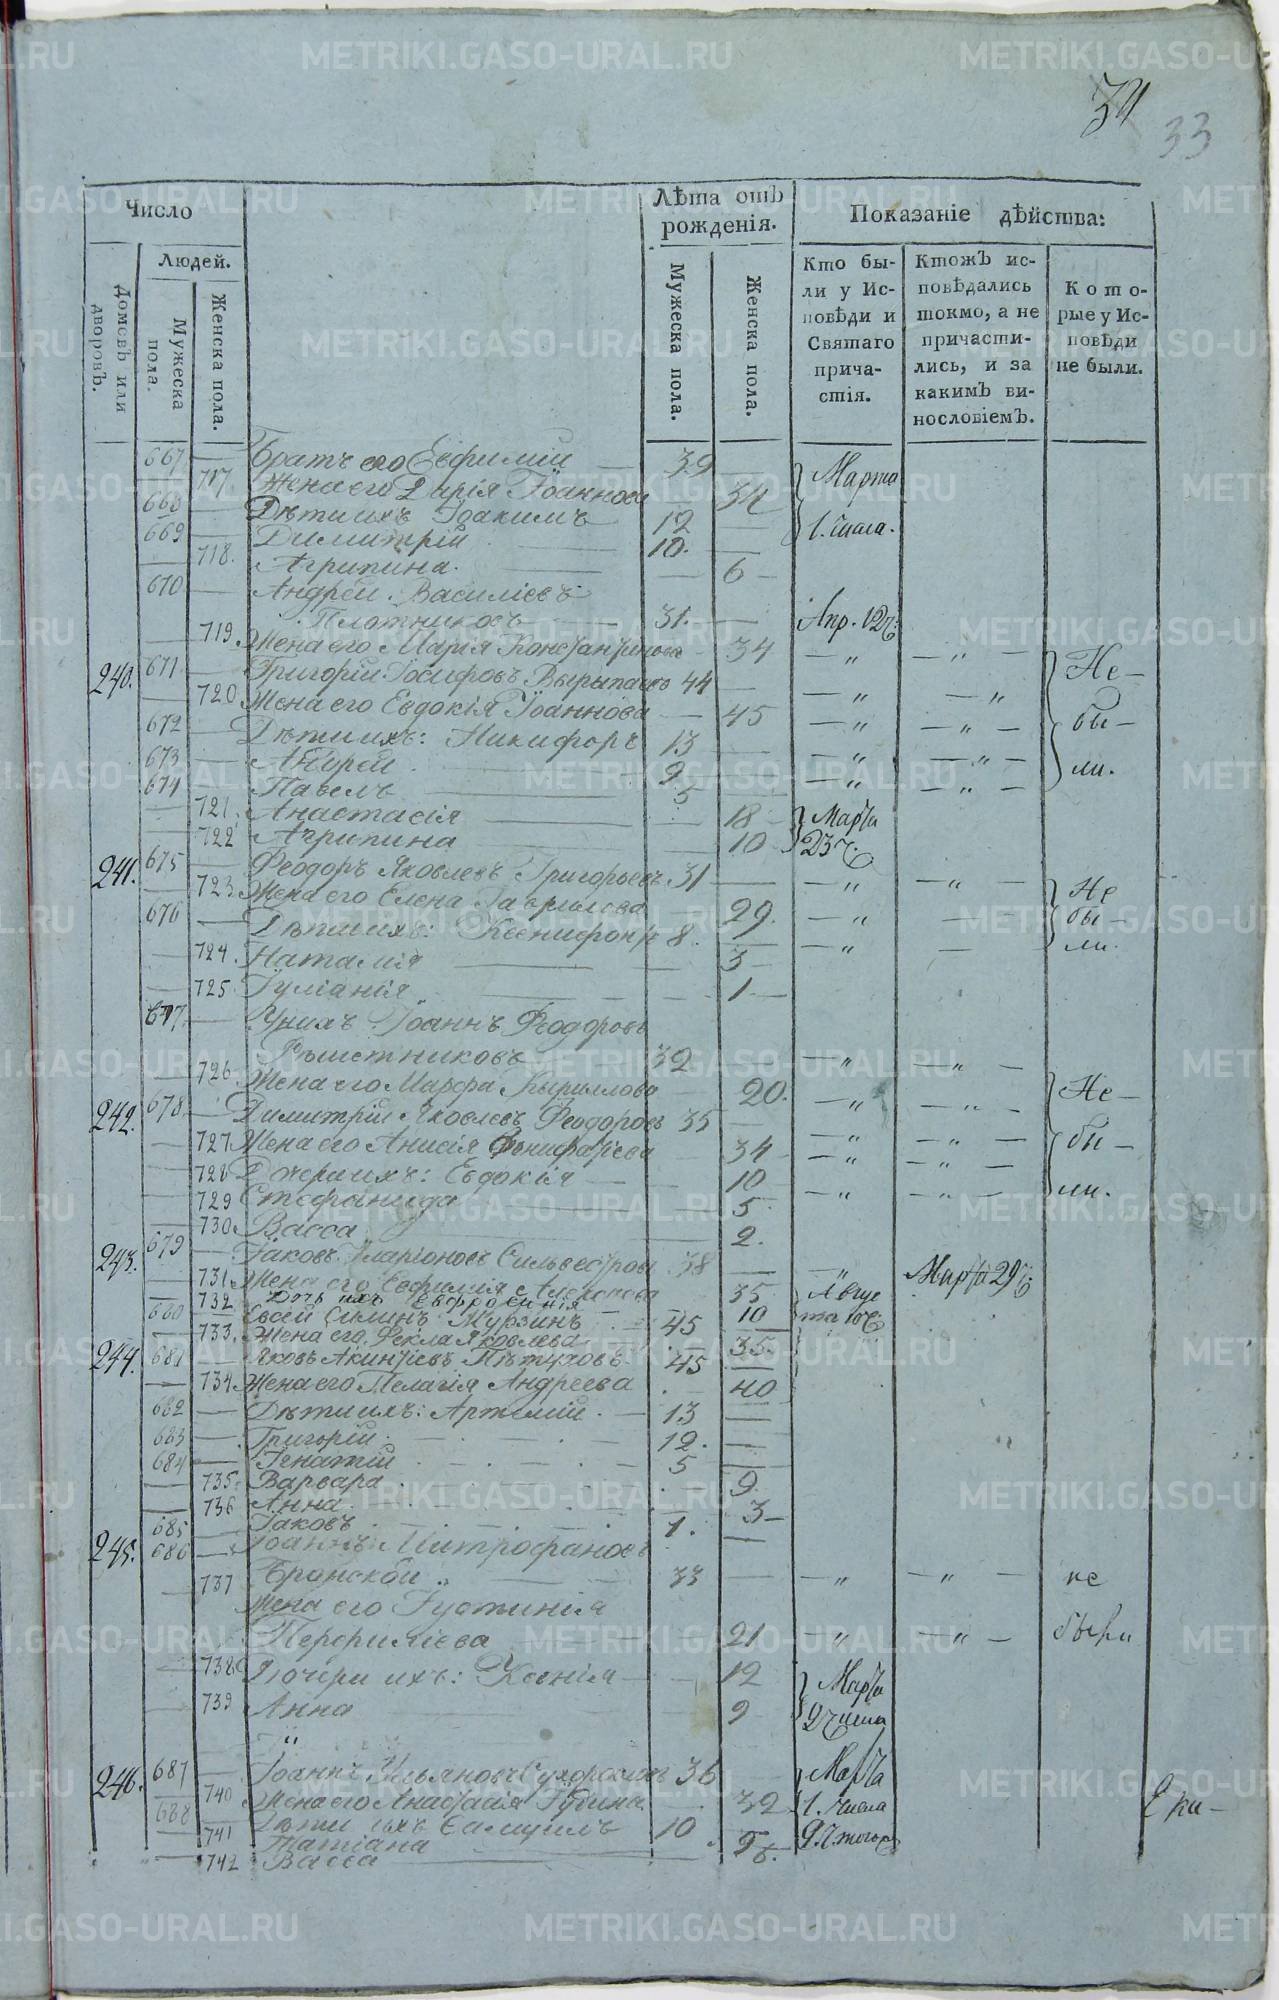 34
33
Число
Людей.
Домовъ или дворовъ.
Мужеска пола.
Женска пола.
Лѣта отъ рожденія.
Мужеска пола.
Женска пола.
Показаніе дѣйства:
Кто были у Исповѣди и Святаго причастія.
Ктожъ исповѣдались токмо, а не причастились, и за какимъ винословіемъ.
Которые у Исповѣди не были.
667 Братъ его Евфимій 39 Марта
717. Жена его Дарія Іоаннова 34
668 Дѣти ихъ Іоакимъ 12 1. числа.
669 Димитрій 10.
718. Агрипина. 6
670 Андрей Василіевъ
Плотниковъ 31. Апр. 12
719 Жена его Марія Константинова 34 Не
240. 671 Григорій Іосифовъ 44
720 Жена его Евдокія Іоаннова 45 бы
672 Дѣти ихъ: Никифоръ 13
673 Андрей 9 ли.
674 Павелъ 5
721. Анастасія 18 Марта
722 Агрипина 10 23 ч.
241. 675 Феодоръ Яковлевъ Григорьевъ 31
723. Жена его Елена Гаврилова 29. Не
676 Дѣти ихъ: Ксенифонтъ 8. бы
724. Наталія 3 ли.
725. Іуліанія 1
677 У нихъ Іоаннъ Феодоровъ
Рѣшетниковъ 32
726. Жена его Марфа Кириллова 20. Не
242. 678 Димитрій Яковлевъ Феодоровъ 35
727. Жена его Анисія 34 бы
728 Дочери ихъ: Евдокія 10
729 Стефанида 5. ли.
730. Васса 2.
243. 679 Іаковъ Иларіоновъ Сильвестровъ 38 Марта 29
731. Жена его Евфимія 35 Авгу
732 Дочь ихъ Евфросинія 10 та 10
680 Евсей Силинъ Мурзинъ 45
733. Жена его Фекла Яковлева 35.
244. 681 Яковъ Акинтіевъ Пѣтуховъ 45
734. Жена его Пелагія Андреева 40
682 Дѣти ихъ: Артемій 13
683 Григорій 12.
684 Генатій 5
735. Варвара 9.
736 Анна 3
685 Іаковъ 1.
245. 686 Іоаннъ Митрофановъ
Бранской 33 не
737 Жена его Густинія
Перфиліева 21 были
738 Дочери ихъ: Ксенія 12 Марта
739 Анна 9 2 числа
246. 687 Іоаннъ Ульяновъ 36 Марта
740 Жена его Анастасія 32 1. числа
688 Дѣти ихъ Самуилъ 10
741 Татіана 9
742 Васса 6.
Ека-
METRIKI.GASO-URAL.RU